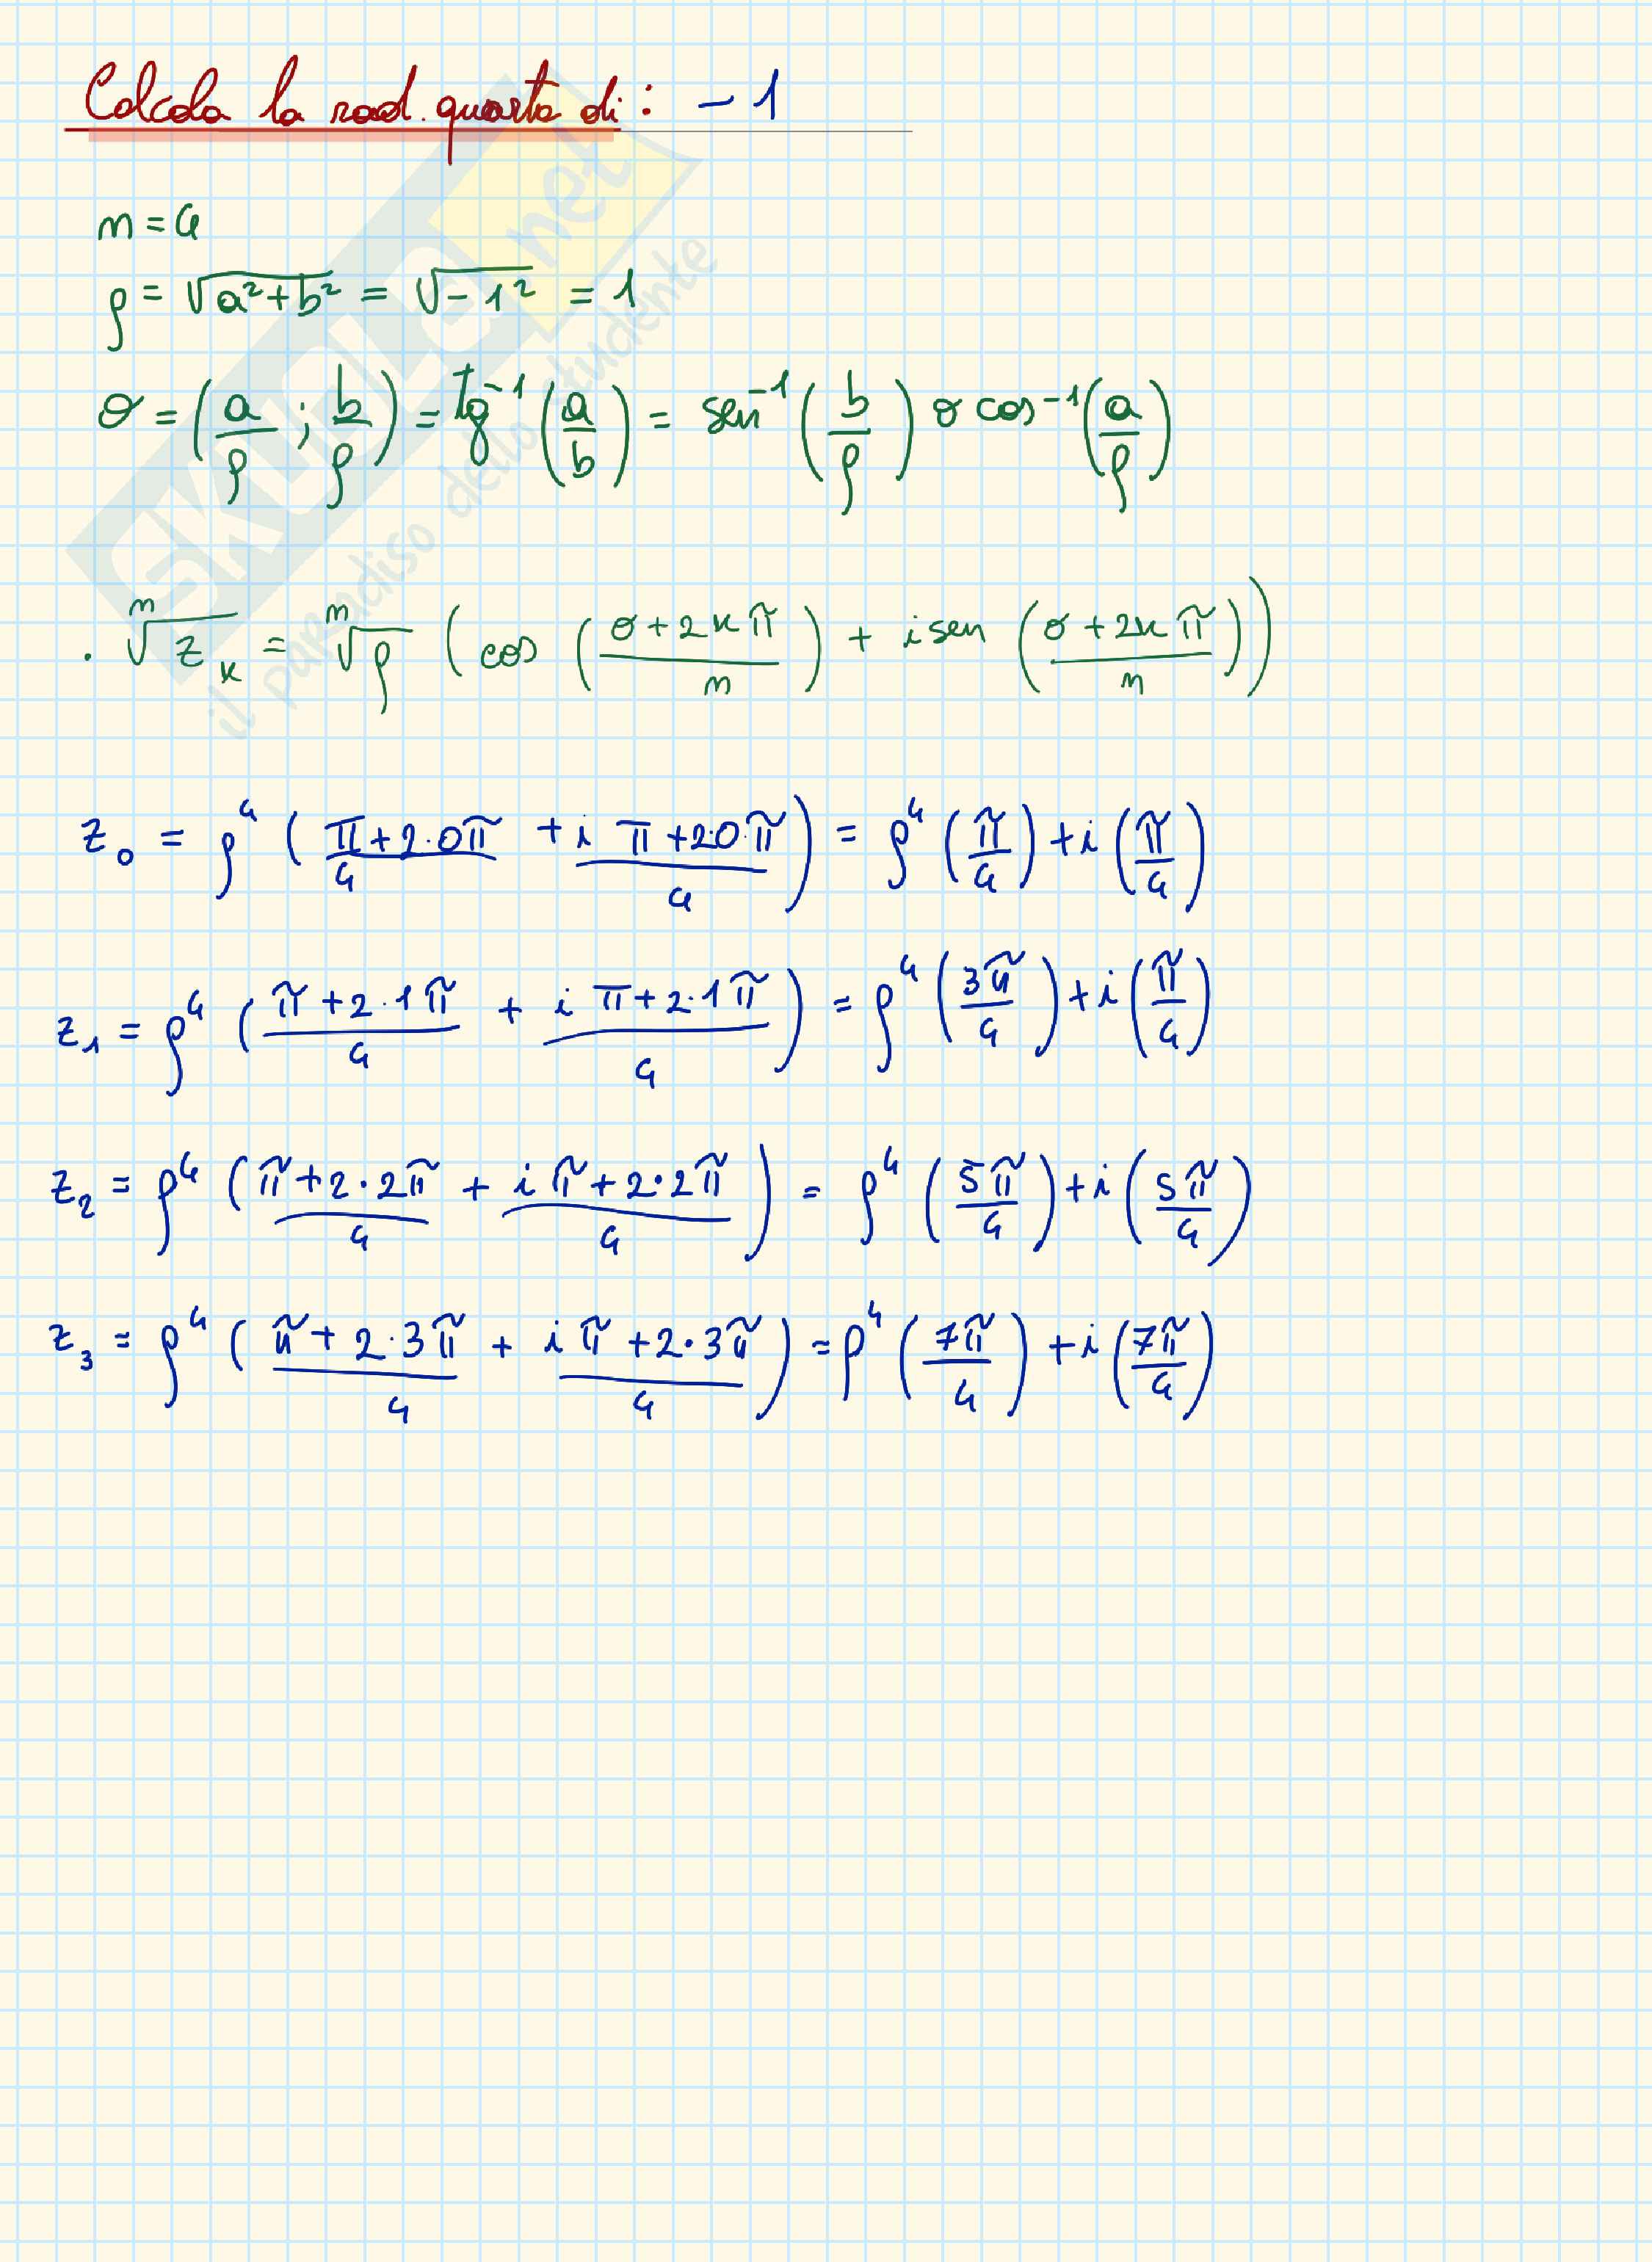 Calcola la rad. quarta di: -1
SKUOLA.net
il paradiso dello studente
n = 4
ρ = √(a²+b²) = √(-1²) = 1
θ = (a/ρ ; b/ρ) = tg⁻¹(a/b) = sen⁻¹(b/ρ) o cos⁻¹(a/ρ)
. ⁿ√z_k = ⁿ√ρ (cos((θ+2kπ)/n) + i sen((θ+2kπ)/n))
z₀ = ρ⁴ ((π+2·0π)/4 + (i π+2·0·π)/4) = ρ⁴ (π/4) + i (π/4)
z₁ = ρ⁴ ((π+2·1π)/4 + (i π+2·1π)/4) = ρ⁴ (3π/4) + i (π/4)
z₂ = ρ⁴ ((π+2·2π)/4 + (i π+2·2π)/4) = ρ⁴ (5π/4) + i (5π/4)
z₃ = ρ⁴ ((π+2·3π)/4 + (i π+2·3π)/4) = ρ⁴ (7π/4) + i (7π/4)